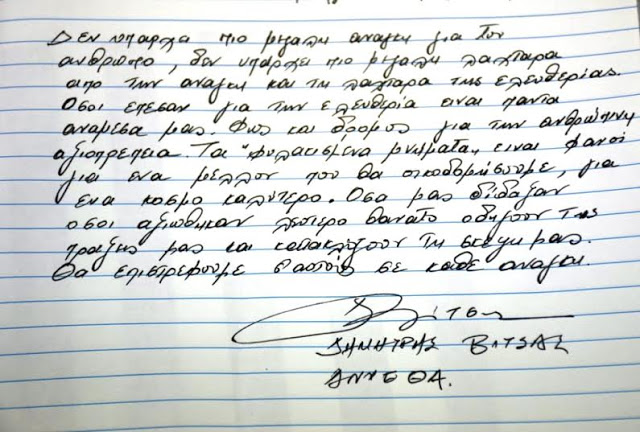 Δεν υπαρχει πιο μεγαλη αναγκη για τον
ανθρωπο, δεν υπαρχει πιο μεγαλη λαχταρα
απο την αναγκη και τη λαχταρα της ελευθερίας.
Οσοι επεσαν για την ελευθερία ειναι παντα
αναμεσα μας. Φως και δρομος για την ανθρώπινη
αξιοπρεπεια. Τα "φυλακισμενα μνηματα" ειναι φανοί
για ενα μελλον που θα οικοδομήσουμε, για
ένα κοσμο καλύτερο. Οσα μας δίδαξαν
οσοι αξιώθηκαν λευτερο θανατο οδηγουν τις
πραξεις μας και κατακλυζουν τη σκεψη μας.
Θα επιστρεφουμε σ'αυτούς σε καθε αναγκη.
ΔΗΜΗΤΡΗΣ ΒΙΤΣΑΣ
ΑΝΥΕΘΑ.